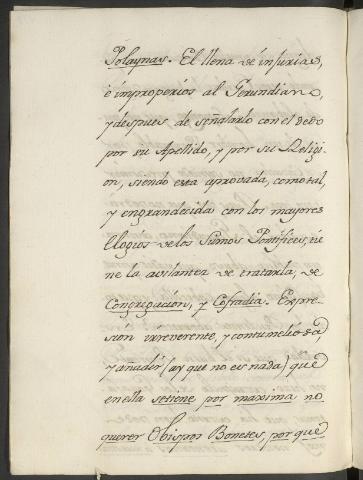 Polaynas. El llena de injurias,
é improperios al Gerundiano,
y despues de señalarlo con el dedo
por su Apellido, y por su Religi
on, siendo esta aprovada, como tal,
y engrandecida con los mayores
Elogios de los Sumos Pontifices, tie
ne la avilantez de tratarla, de
Congregacion, y Cofradia. Expre-
sión irreverente, y contumeliosa,
y añadir (ay que no es nada) que
en ella se tiene por maxima no
querer Obispos Bonetes, por que